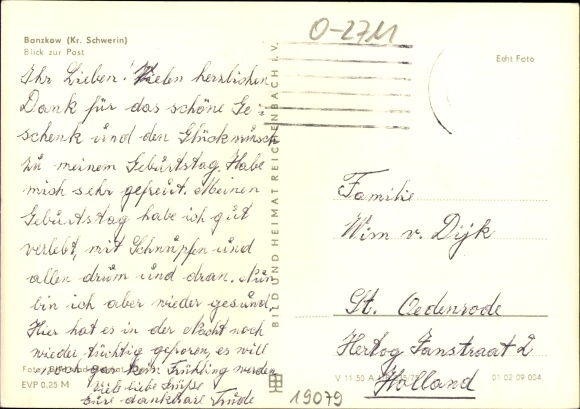 Banzkow (Kr. Schwerin)
Blick zur Post
O-2711
Echt Foto
Ihr Lieben! Vielen herzlichen
Dank für das schöne Ge-
schenk und den Glückwunsch
zu meinem Geburtstag. Habe
mich sehr gefreut. Meinen
Geburtstag habe ich gut
verlebt, mit Schnupfen und
allen drum und dran. Nun
bin ich aber wieder gesund.
Hier hat es in der Nacht noch
wieder tüchtig gefroren, es will
noch gar kein Frühling werden
Viele liebe Grüße
Eure dankbare Trude
Foto:
EVP 0,25 M
BILD UND HEIMAT REICHENBACH I. V.
Familie
Wim v. Dijk
St. Oedenrode
Hertog Janstraat 2
Holland
V 11 50 A
01 02 09 004
19079